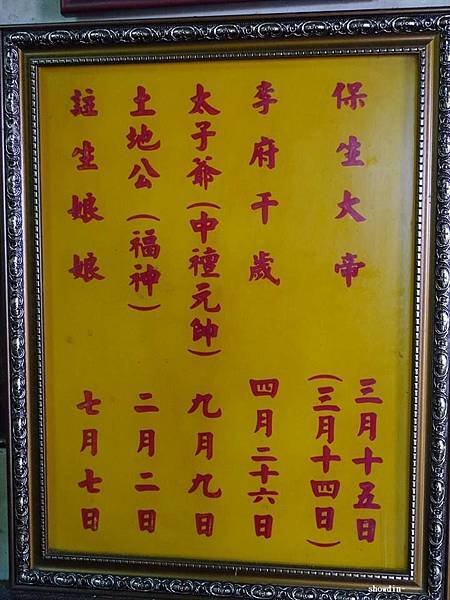 保生大帝 三月十五日
(三月十四日)
李府千歲 四月二十六日
太子爺(中檀元帥) 九月九日
土地公(福神) 二月二日
註生娘娘 七月七日
showdin